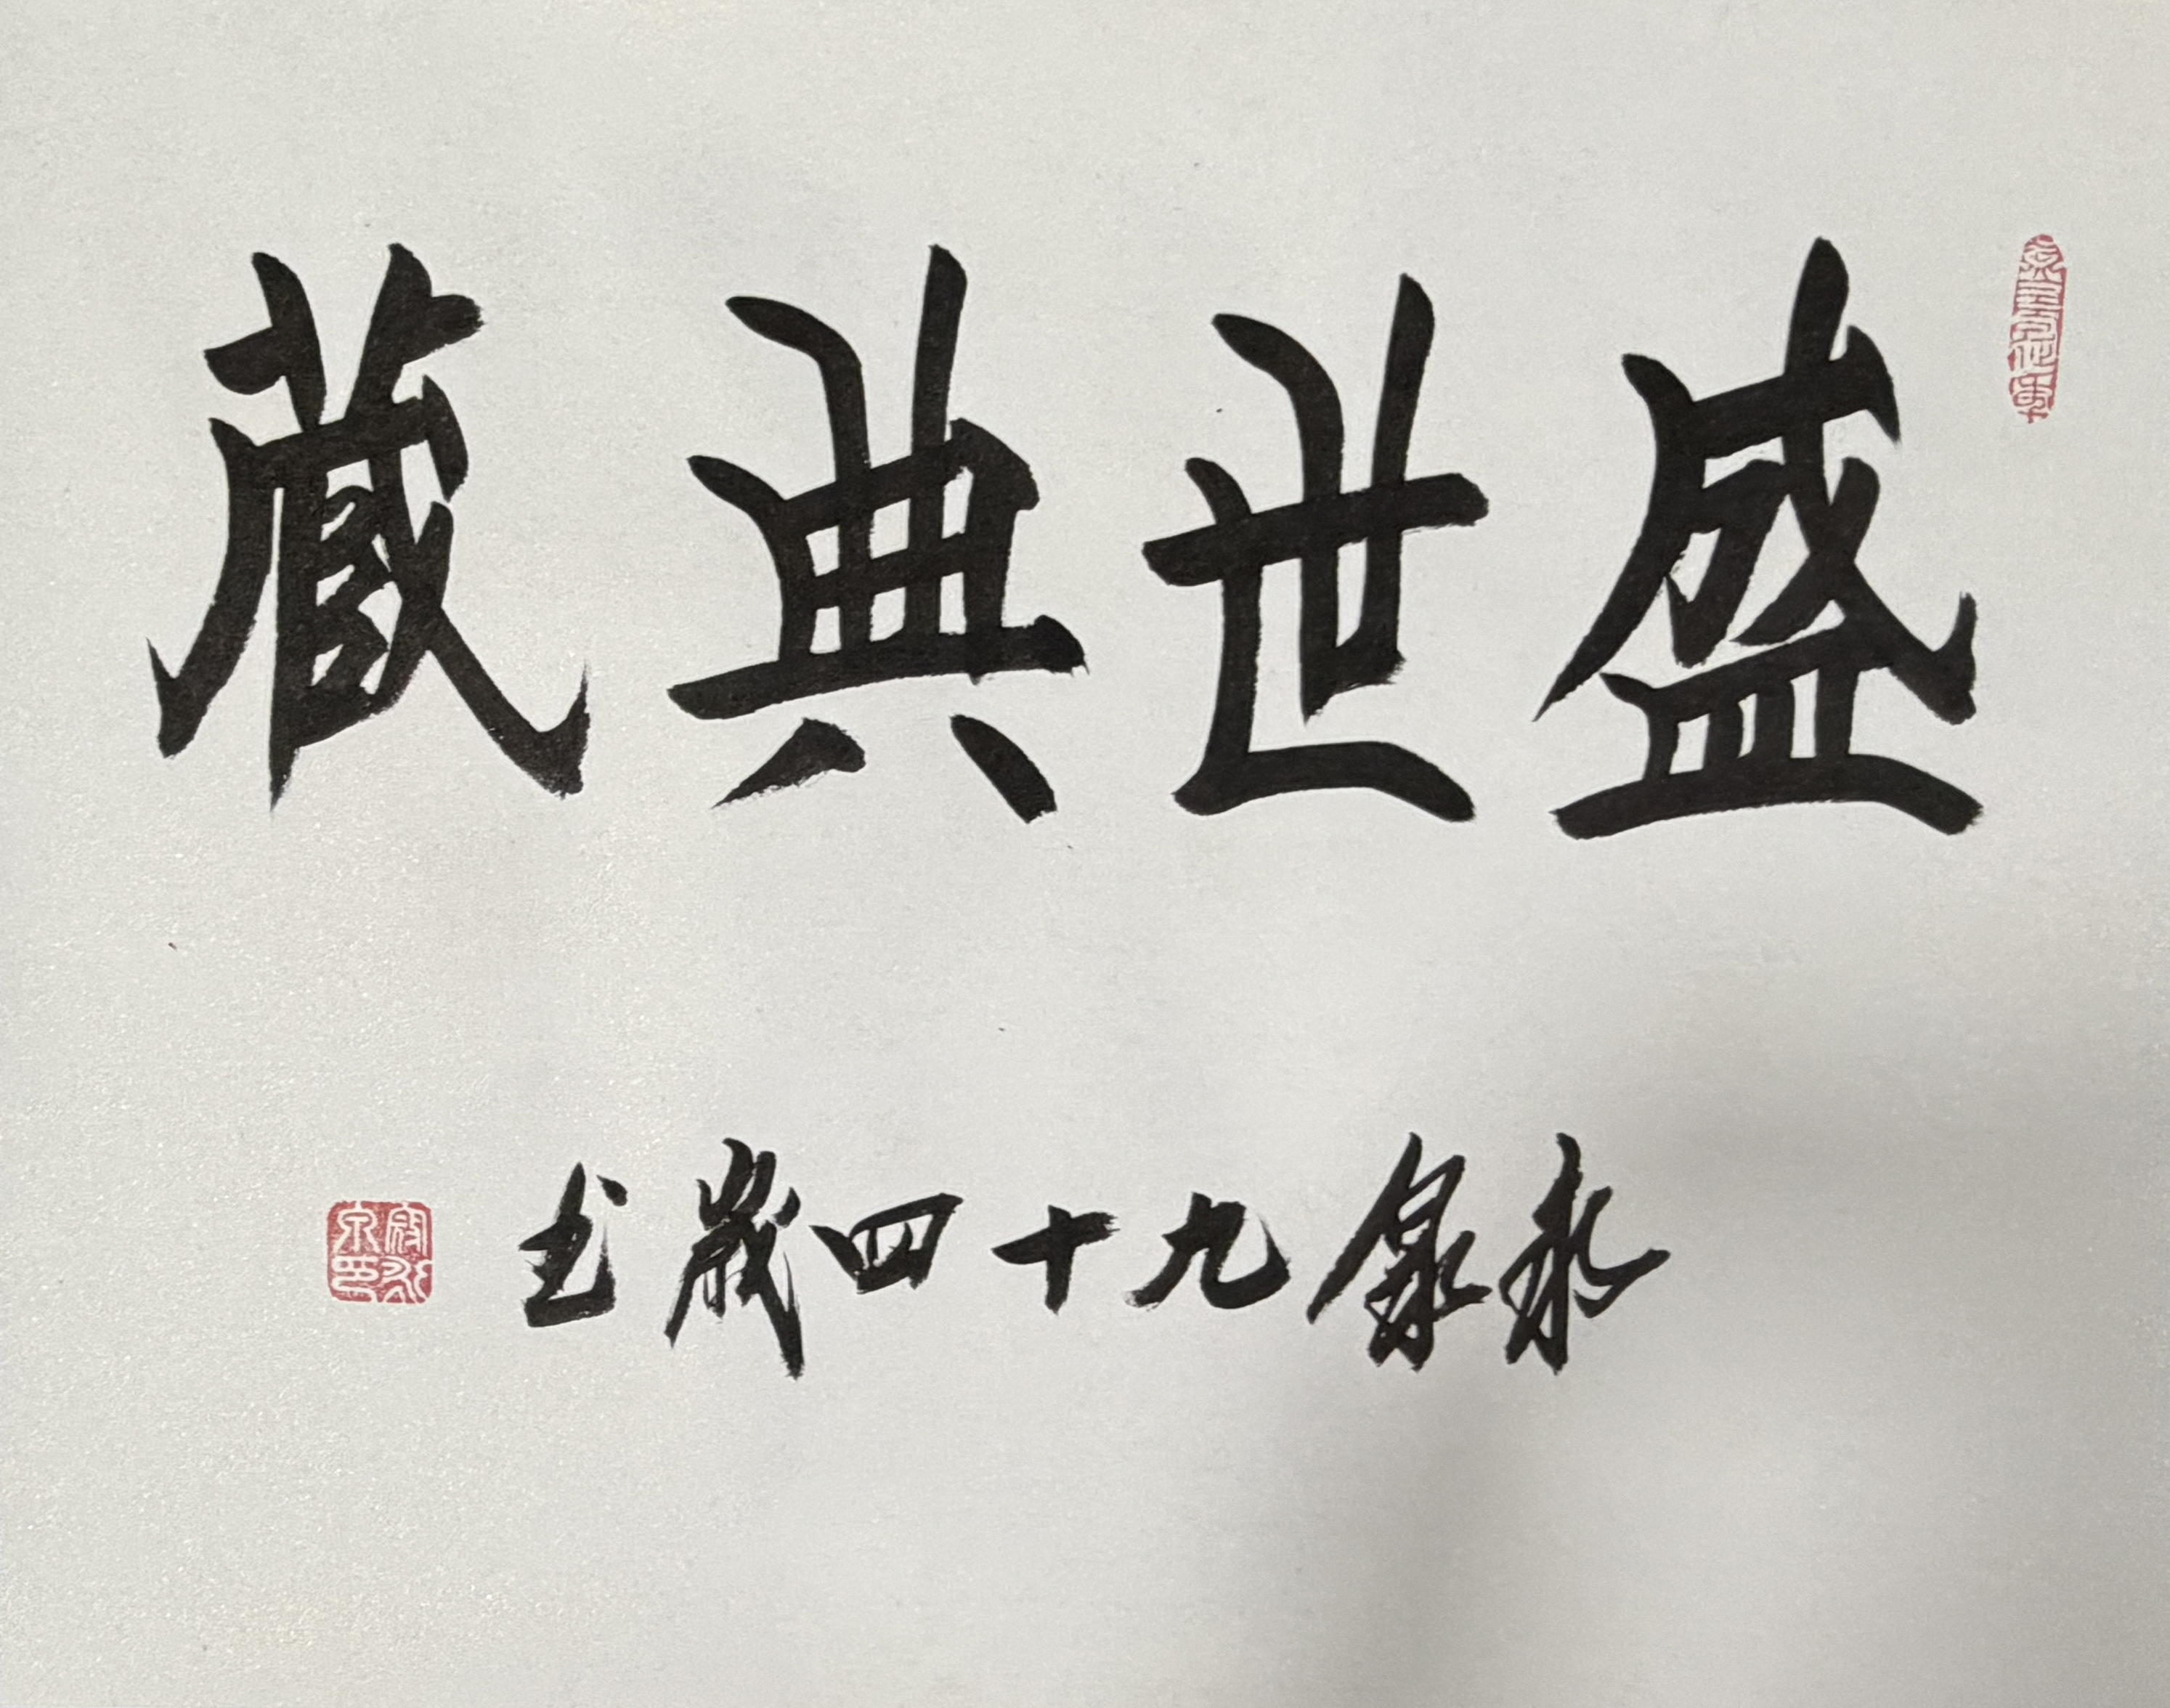 盛世典藏
永泉九十四歲书